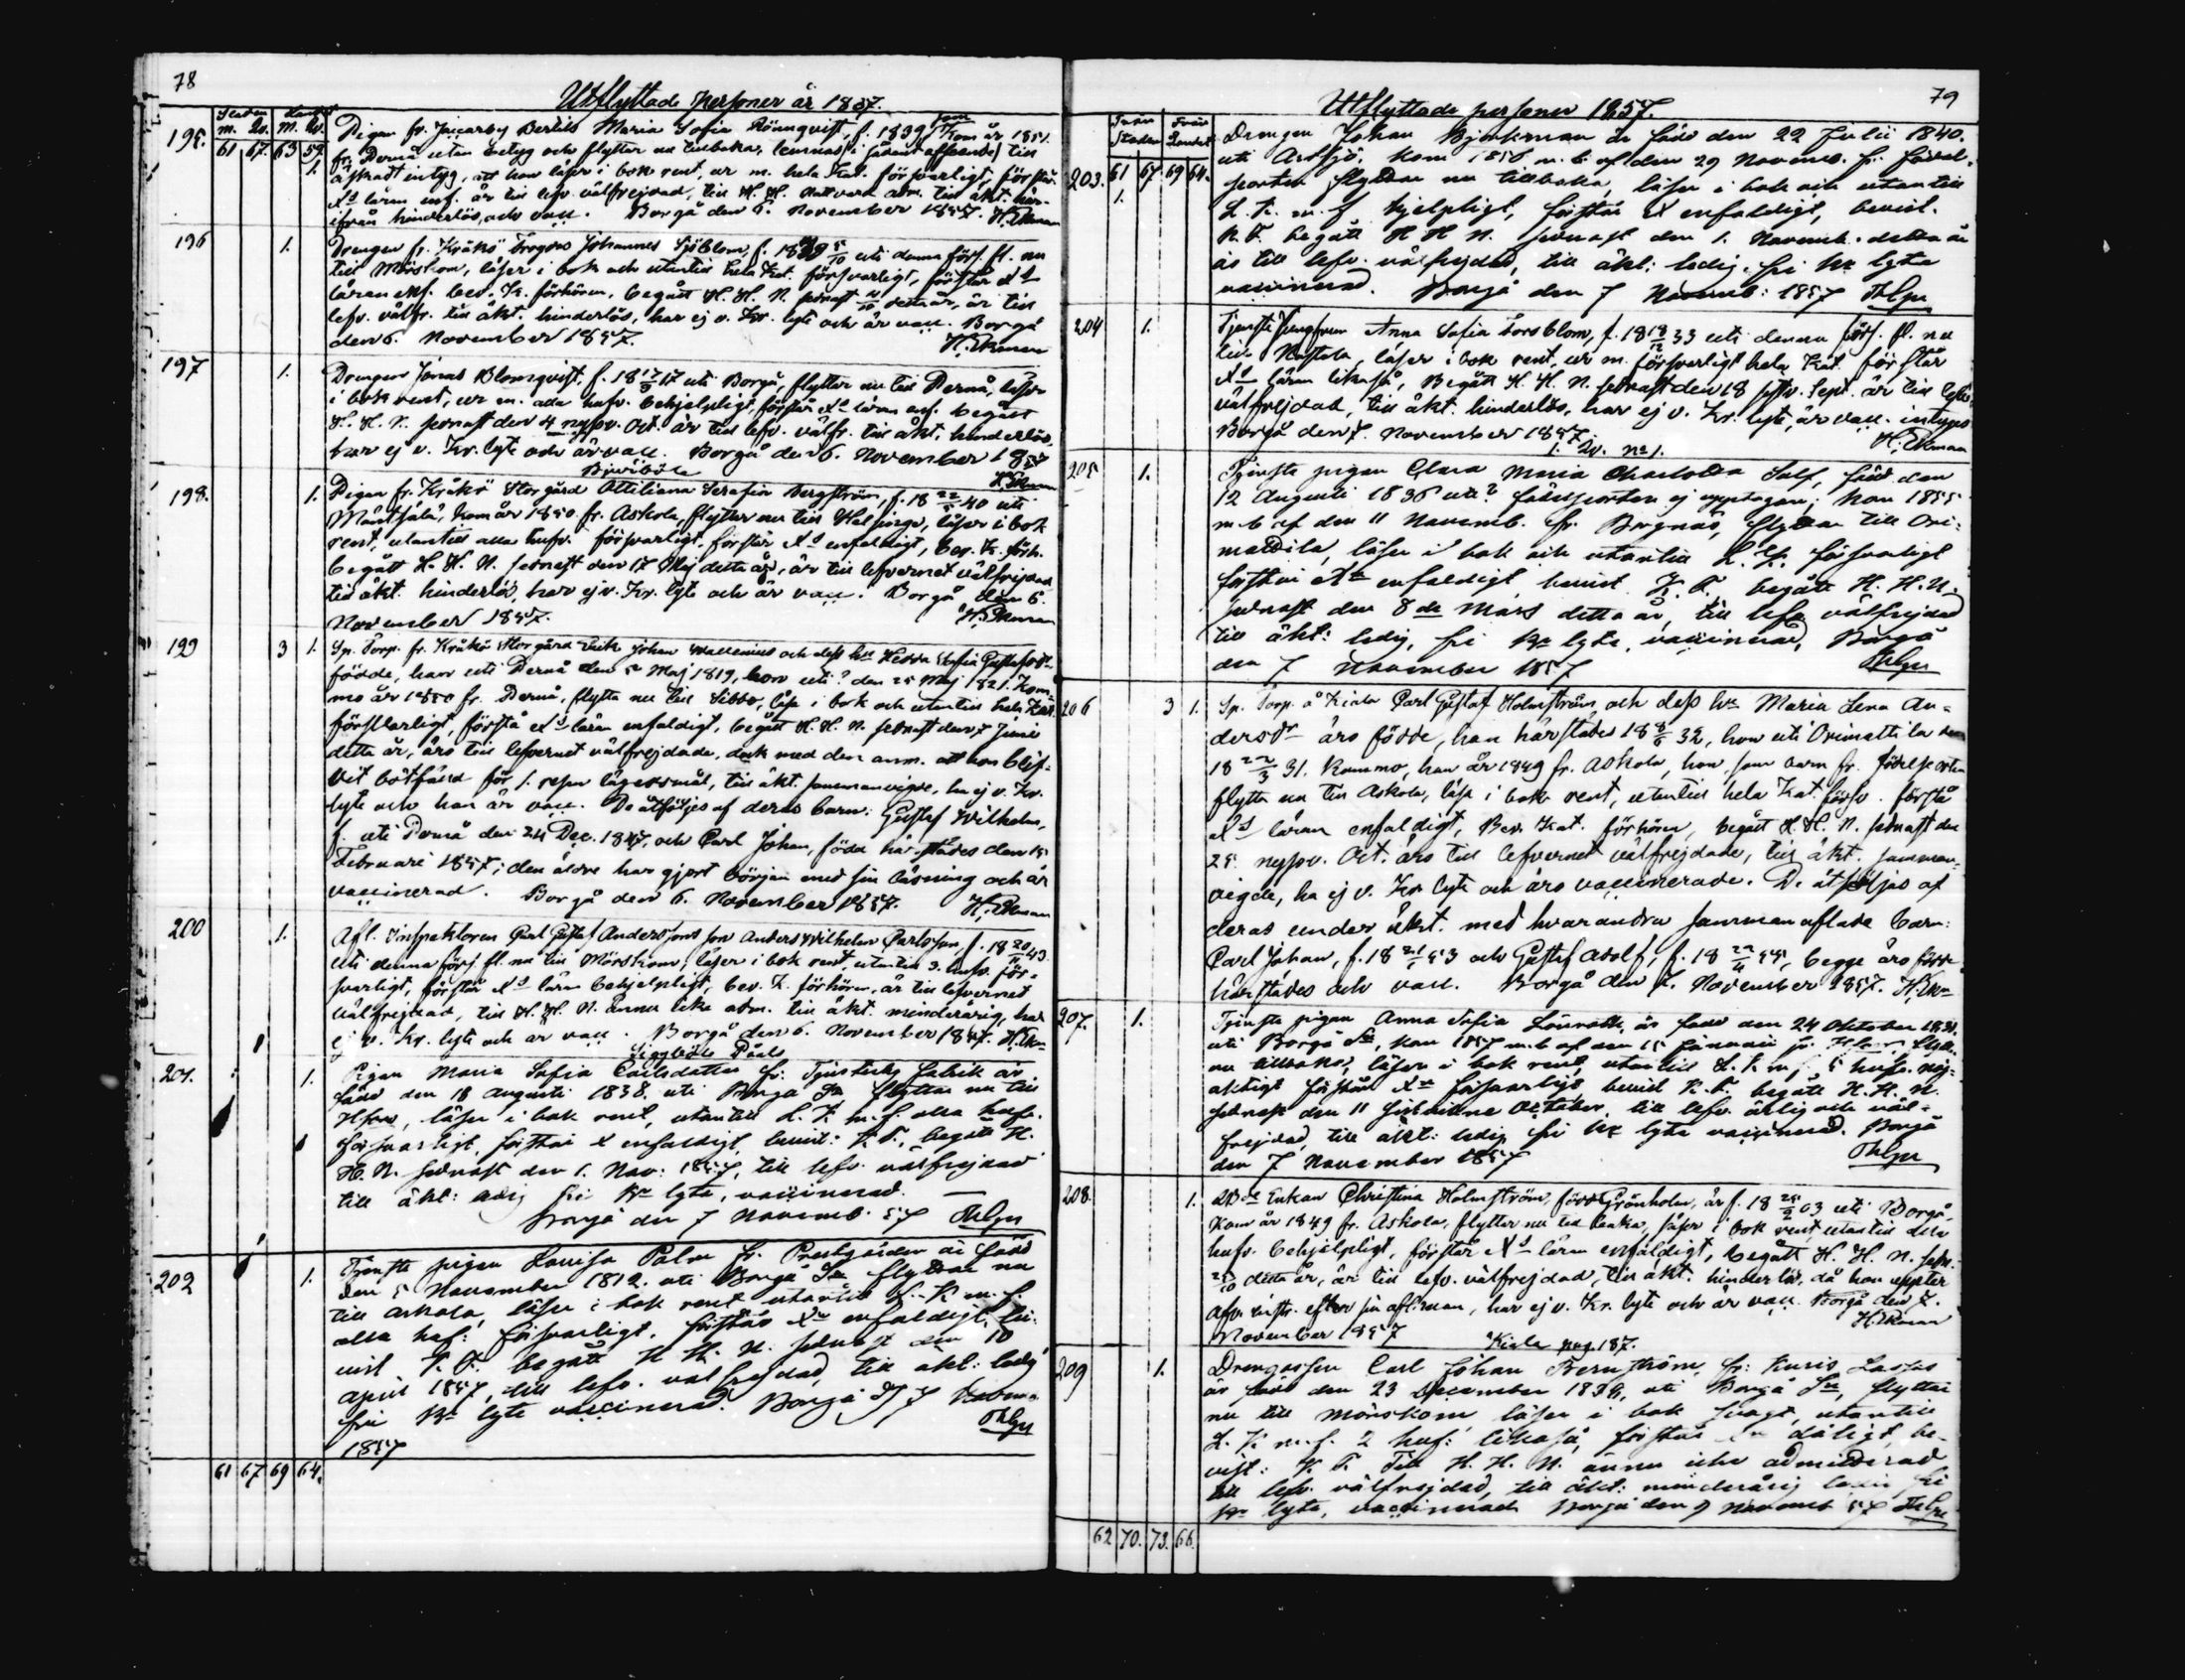 78
Utflyttade personer år 1857.
Staden Landet
m. Qv. M. Qv.
61 67. 63 59
195. 1. Pigan fr. Jaccarby Bertils Maria Sofia Rönnqvist, f. 1839, kom år 1851
fr. Pernå utan betyg och flyttar nu tillbaka, lemnas i
äskadt intyg, att hon läser i bok rent, ur m. hela Kat. försvarligt, förstår
Xs läran enf. är till lefv. välfrejdad, till H. H. Nattvard adm. till äkt. här-
ifrån hinderlös, och vacc. Borgå den 6. November 1857. H. Ekman
196 1. Drengen fr. Kråkö Frognäs Johannes Sjöblom, f. 18 uti denna förs. fl. nu
till Mörskom, läser i bok och utantill hela Kat. försvarligt, förstår Xs
läran enf. bev. K. förhören, begått H. H. N. sednast detta år, är till
lefv. välfr. till äkt. hinderlös, har ej v. Kr. lyte och är vacc. Borgå
den 6. November 1857. H. Ekman
197 1. Drengen Jonas Blomqvist, f. 18 17/9 17 uti Borgå, flyttar nu till Pernå, läser
i bok rent, ur m. alla hufv. behjelpligt, förstår Xs läran enf. begått
H. H. N. sednast den 4 nyssv. Oct. är till lefv. välfr. till äkt. hinderlös,
har ej v. Kr. lyte och är vacc. Borgå den 6. November 1857
H. Ekman
198. 1. Pigan fr. Kråkö Storgård Ottiliana Serafia Bergström, f. 18 40 uti
Mäntsälä, kom år 1850 fr. Askola, flyttar nu till Helsinge, läser i bok
rent, utantill alla hufv. försvarligt, förstår Xs enfaldigt, bev. K. förh.
begått H. H. N. sednast den 17 Maj detta år, är till lefvernet välfrejdad
till äkt. hinderlös, har ej v. Kr. lyte och är vacc. Borgå den 6.
November 1857. H. Ekman
199 3 1. Sp. Torp. fr. Kråkö Storgård Erik Johan Wallenius och dess hu Hedda Sofia Gustafsdr
födde, han uti Pernå den 5 Maj 1819, hon uti? den 25 Maj 1821. Kom-
mo år 1850 fr. Pernå, flytta nu till Sibbo, läsa i bok och utantill hela Kat.
försvarligt, förstå Xs läran enfaldigt, begått H. H. N. sednast den 7 Junii
detta år, äro till lefvernet välfrejdade, dock med den anm. att hon blif-
vit botfäld för 1. resan lägersmål, till äkt. sammanvigde, ha ej v. Kr.
lyte och han är vacc. De åtföljes af deras barn: Gustaf Wilhelm,
f. uti Pernå den 24 Dec. 1847, och Carl Johan, född härstädes den 15
Februari 1857; den äldre har gjort början med sin läsning och är
vaccinerad. Borgå den 6. November 1857. H. Ekman
200 1. Afl. Inspektoren Carl Gustaf Anderssons son Anders Wilhelm Carlsson, f. 18 20/11 43
uti denna förs. fl. nu till Mörskom; läser i bok rent, utantill 3. hufv. för-
svarligt, förstår Xs läran behjelpligt, bev. K. förhören, är till lefvernet
välfrejdad, till H. H. N. ännu icke adm. till äkt. minderårig, har
ej v. Kr. lyte och är vacc. Borgå den 6. November 1857. H. Ekm
201. 1. Pigan Maria Sofia Carlsdotter fr: är
född den 18 Augusti 1838. uti Borgå Sn flyttar nu till
Hfors, läser i bok rent, utantill L. K. m. f. alla hufv.
försvarligt, förstår X enfaldigt, bevist: K. F., begått H.
H. N. sednast den 1. Nov: 1857, till lefv. välfrejdad
till äkt: ledig fri Kr lyte, vaccinerad.
Borgå den 7 Novemb. 57
202 1. Tjenste pigan Lovisa Palm fr. Prestgården är född
den 5 November 1812. uti Borgå Sn flyttar nu
till Askola, läser i bok rent utantill L. K. m. f.
alla huf: försvarligt, förstår Xn enfaldigt, be-
vist K. F. begått H. H. N. sednast den 10
April 1857, till lefv. välfrejdad, till äkt: ledig
fri Kr lyte vaccinerad. Borgå d. 7 Novem.
1857
61 67 69 64.
79
Utflyttade personer 1857.
Från Staden Från Landet
61 67. 69 64.
203. 1. Drengen Johan Björkman är född den 22 Julii 1840.
uti Artsjö, kom 1856 m. b. af den 29 Novemb. fr. födel-
seorten flyttar nu tillbaka, läser i bok och utantill
L. K. m. f. hjelpligt, förstår X enfaldigt, bevist.
K. F. begått H H N. sednast den 1. Novemb. detta år
är till lefv. välfrejdad, till äkt: ledig, fri Kr lyte
vaccinerad. Borgå den 7 Novemb: 1857
204 1. Tjenste Jungfrun Anna Sofia Forsblom, f. 18 18/12 33 uti denna förs. fl. nu
till Nastola, läser i bok rent, ur m. försvarligt hela Kat. förstår
Xs läran likaså, begått H. H. N. sednast den 18 sistv. Sept. är till lefv.
välfrejdad, till äkt. hinderlös, har ej v. Kr. lyte, är vacc. intygas
Borgå den 7. November 1857. H. Ekman
1. Qv. No 1.
205 1. Tjenste pigan Clara Maria Charlotta Salf, född den
12 Augusti 1836 uti? födelseorten ej upptagen; kom 1855
m. b. af den 11 Novemb. fr. Borgnäs, flyttar till Ori-
mattila, läser i bok och utantill L. K. försvarligt
förstår Xn enfaldigt bevist K. F. begått H. H. N.
sednast den 8 de Mars detta år, till lefv. välfrejdad
till äkt: ledig, fri Kr lyte, vaccinerad, Borgå
den 7 November 1857
206 3 1. Sp. Torp. å Kiala Carl Gustaf Holmström och dess hu Maria Lena An-
dersdr äro födde, han härstädes 18 8/6 32, hon uti Orimattila den
18 22/3 31. Kommo, han år 1849 fr. Askola, hon som barn fr. födelseorten
flytta nu till Askola, läsa i bok rent, utantill hela Kat. försv. förstå
Xs läran enfaldigt, bev. Kat. förhören, begått H. H. N. sednast den
25. nyssv. Oct. äro till lefvernet välfrejdade, till äkt. samman-
vigde, ha ej v. Kr. lyte och äro vaccinerade. De åtföljas af
deras under äkt. med hvarandra sammanaflade barn:
Carl Johan, f. 18 53 och Gustaf Adolf, f. 18 22/4 55, begge äro födde
härstädes och vacc. Borgå den 7. November 1857. H. Ekm
207. 1. Tjenste pigan Anna Sofia Lönrott, är född den 24 Oktober 1831.
uti Borgå Sn, kom 1857 m. b. af den 15 Januarii fr. flytt.
nu tillbaka, läser i bok rent, utantill L. K. m. f. 5 hufv. nöj-
aktigt förstår Xn försvarligt, bevist K. F. begått H. H. N.
sednast den 11 Oktober, till lefv. ärlig och väl-
frejdad, till äkt: ledig fri Kr lyte vaccinerad. Borgå
den 7 November 1857
208. 1. Enkan Christina Holmström, född Grönholm, är f. 18 25/2 03 uti Borgå,
kom år 1849 fr. Askola, flyttar nu tillbaka, läser i bok rent, utantill
hufv. behjelpligt, förstår Xs läran enfaldigt, begått H. H. N. sedn.
detta år, är till lefv. välfrejdad, till äkt. hinderlös, då hon uppter
afv. instr. efter sin afl. man, har ej v. Kr. lyte och är vacc. Borgå den 7.
November 1857 H. Ekman
Kiala pag. 187.
209 1. Drengossen Carl Johan Bernström, fr: Kuris Lasses
är född den 23 December 1838, uti Borgå Sn, flyttar
nu till Mörskom läser i bok svagt, utantill
L. K. m. f. 2 huf: likaså, förstår dåligt, be-
vist: K. F. Till H. H. N. ännu icke admitterad
till lefv. välfrejdad, till äkt: minderårig fri
Kr lyte, vaccinerad Borgå den 7 Novemb 57
62 70. 73. 66.